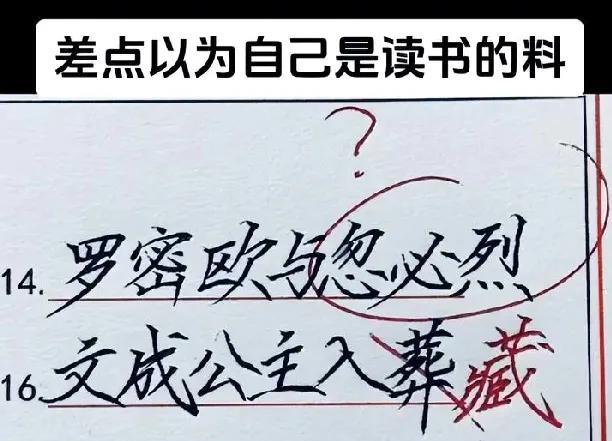 差点以为自己是读书的料
?
14. 罗密欧与忽必烈
16. 文成公主入葬藏